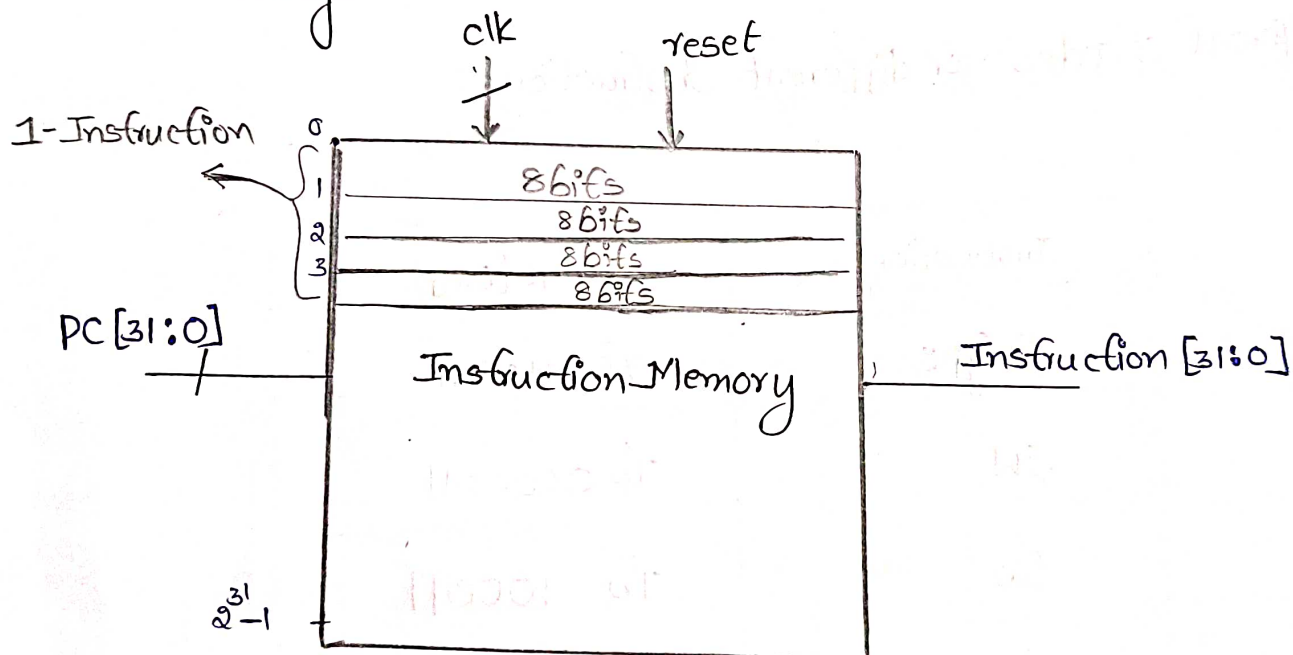 clk
reset
1-Instruction
0
8bits
1
8bits
2
8bits
3
8bits
PC [31:0]
Instruction Memory
Instruction [31:0]
2^31-1